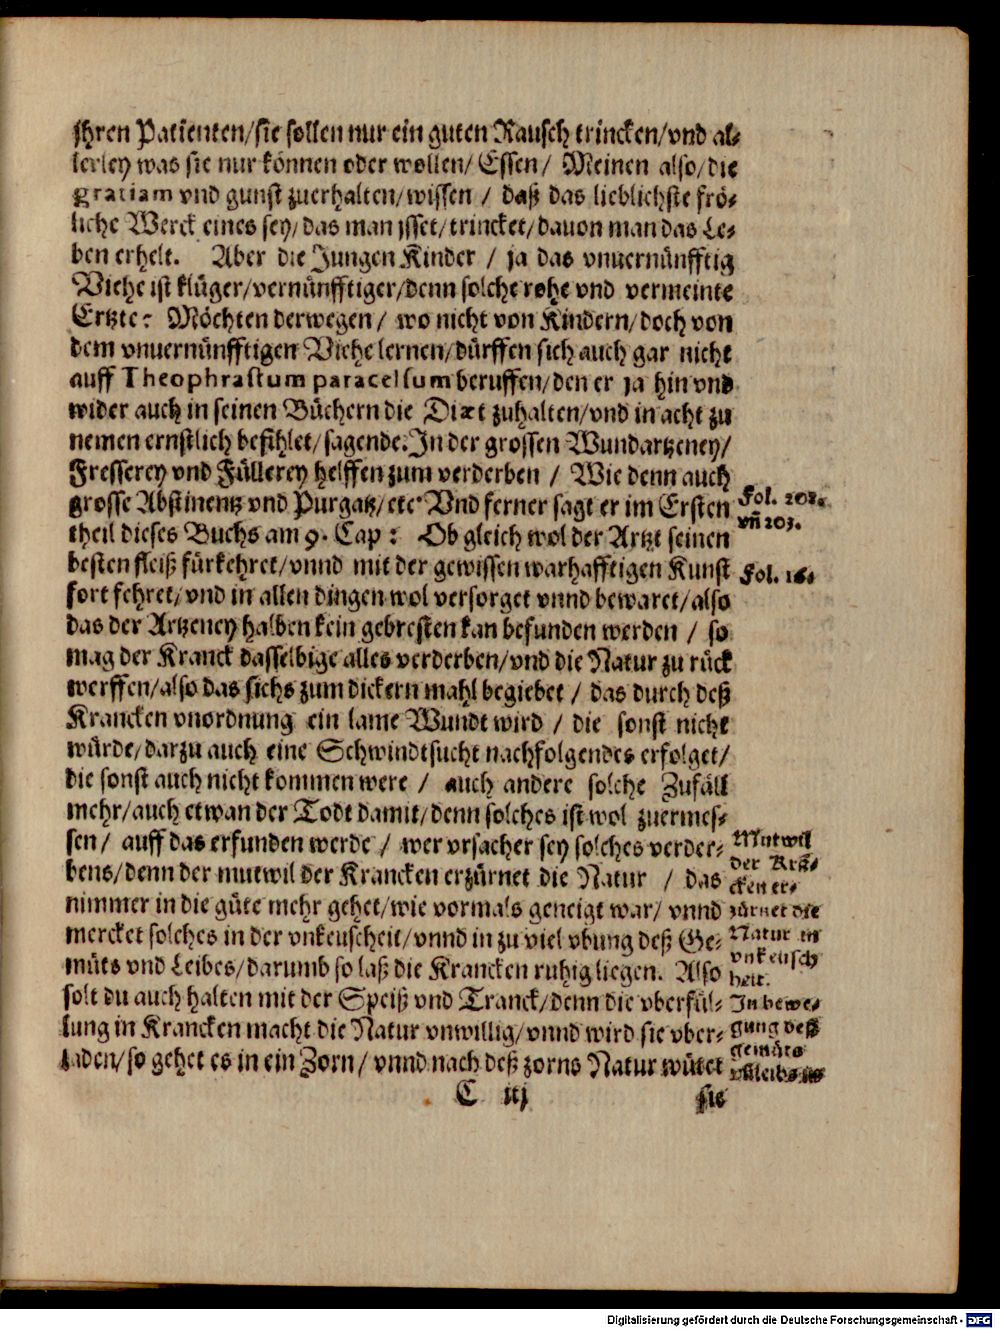 jhren Patienten/sie sollen nur ein guten Rausch trincken/vnd al-
lerley was sie nur können oder wollen/ Essen / Meinen also/die
gratiam vnd gunst zuerhalten/wissen / daß das lieblichste frö-
liche Werck eines sey/das man jsset/trincket/dauon man das Le-
ben erhelt. Aber die Jungen Kinder / ja das vnuernünfftig
Viehe ist klüger/vernünfftiger/denn solche rohe vnd vermeinte
Ertzte: Möchten derwegen / wo nicht von Kindern/doch von
dem vnuernünfftigen Viehe lernen/dürffen sich auch gar nicht
auff Theophrastum paracelsum beruffen/den er ja hin vnd
wider auch in seinen Büchern die Diæt zuhalten/vnd in acht zu
nemen ernstlich befihlet/sagende. In der grossen Wundartzeney/
Fresserey vnd Füllerey helffen zum verderben / Wie denn auch
grosse Abstinentz vnd Purgatz/etc. Vnd ferner sagt er im Ersten
Fol. 202.
vn̄ 203.
theil dieses Buchs am 9. Cap: Ob gleich wol der Artzt seinen
besten fleiß fürkehret/vnnd mit der gewissen warhafftigen Kunst
Fol. 16.
fort fehret/vnd in allen dingen wol versorget vnnd bewaret/also
das der Artzeney halben kein gebresten kan befunden werden / so
mag der Kranck dasselbige alles verderben/vnd die Natur zu rück
werffen/also das sichs zum dickern mahl begiebet / das durch deß
Krancken vnordnung ein lame Wundt wird / die sonst nicht
würde/darzu auch eine Schwindtsucht nachfolgendes erfolget/
die sonst auch nicht kommen were / auch andere solche Zufäll
mehr/auch etwan der Todt damit/denn solches ist wol zuermes-
sen / auff das erfunden werde / wer vrsacher sey solches verder-
bens/denn der mutwil der Krancken erzürnet die Natur / das
nimmer in die güte mehr gehet/wie vormals geneigt war/ vnnd
mercket solches in der vnkeuscheit/vnnd in zu viel vbung deß Ge-
müts vnd Leibes/darumb so laß die Krancken ruhig liegen. Also
solt du auch halten mit der Speiß vnd Tranck/denn die vberfül-
lung in Krancken macht die Natur vnwillig/vnnd wird sie vber-
laden/so gehet es in ein Zorn / vnnd nach deß zorns Natur wütet
Mutwil
der Krā-
cken er-
zürnet die
Natur in
vnkeusch
heit.
In bewe-
gung deß
gemüts
C iij
sie
Digitalisierung gefördert durch die Deutsche Forschungsgemeinschaft - DFG